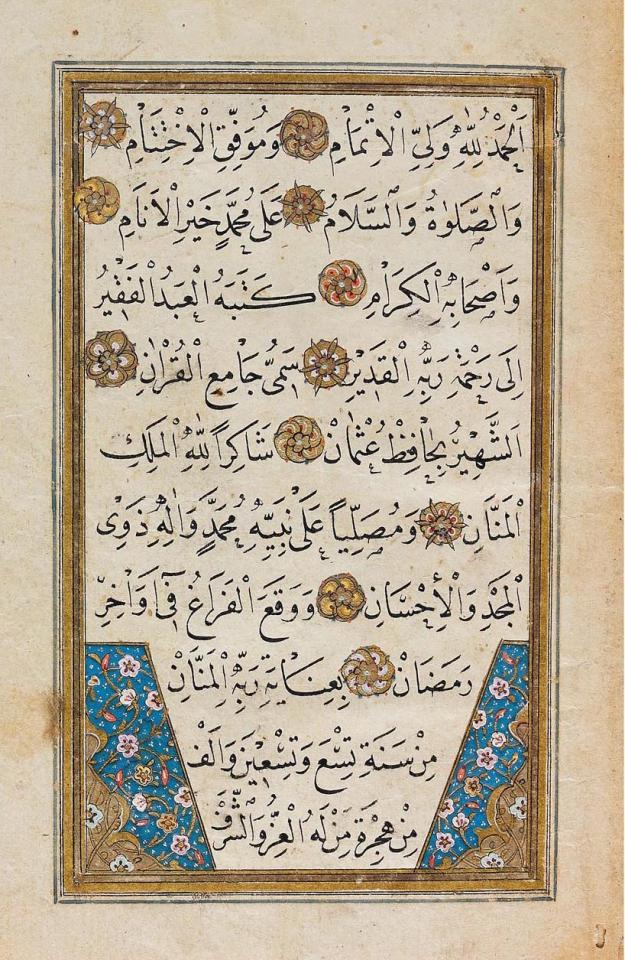 اَلْحَمْدُ لِلّٰهِ وَلِيِّ الْاِتْمَامِ وَمُوَفِّقِ الْاِخْتِتَامِ
وَالصَّلٰوةُ وَالسَّلَامُ عَلٰى مُحَمَّدٍ خَيْرِ الْاَنَامِ
وَاَصْحَابِهِ الْكِرَامِ كَتَبَهُ الْعَبْدُ الْفَقِيرُ
اِلٰى رَحْمَةِ رَبِّهِ الْقَدِيرِ سَمِيُّ جَامِعِ الْقُرْاٰنِ
الشَّهِيرُ بِحَافِظْ عُثْمَانْ شَاكِراً لِلّٰهِ الْمَلِكِ
الْمَنَّانِ وَمُصَلِّياً عَلٰى نَبِيِّهِ مُحَمَّدٍ وَاٰلِهِ ذَوِى
الْمَجْدِ وَالْأِحْسَانِ وَوَقَعَ الْفَرَاغُ فِى اَوَاخِرِ
رَمَضَانْ بِعِنَايَةِ رَبِّهِ الْمَنَّانْ
مِنْ سَنَةِ تِسْعَ وَتِسْعِينَ وَاَلْفْ
مِنْ هِجْرَةِ مَنْ لَهُ الْعِزُّ وَالشَّرَفْ